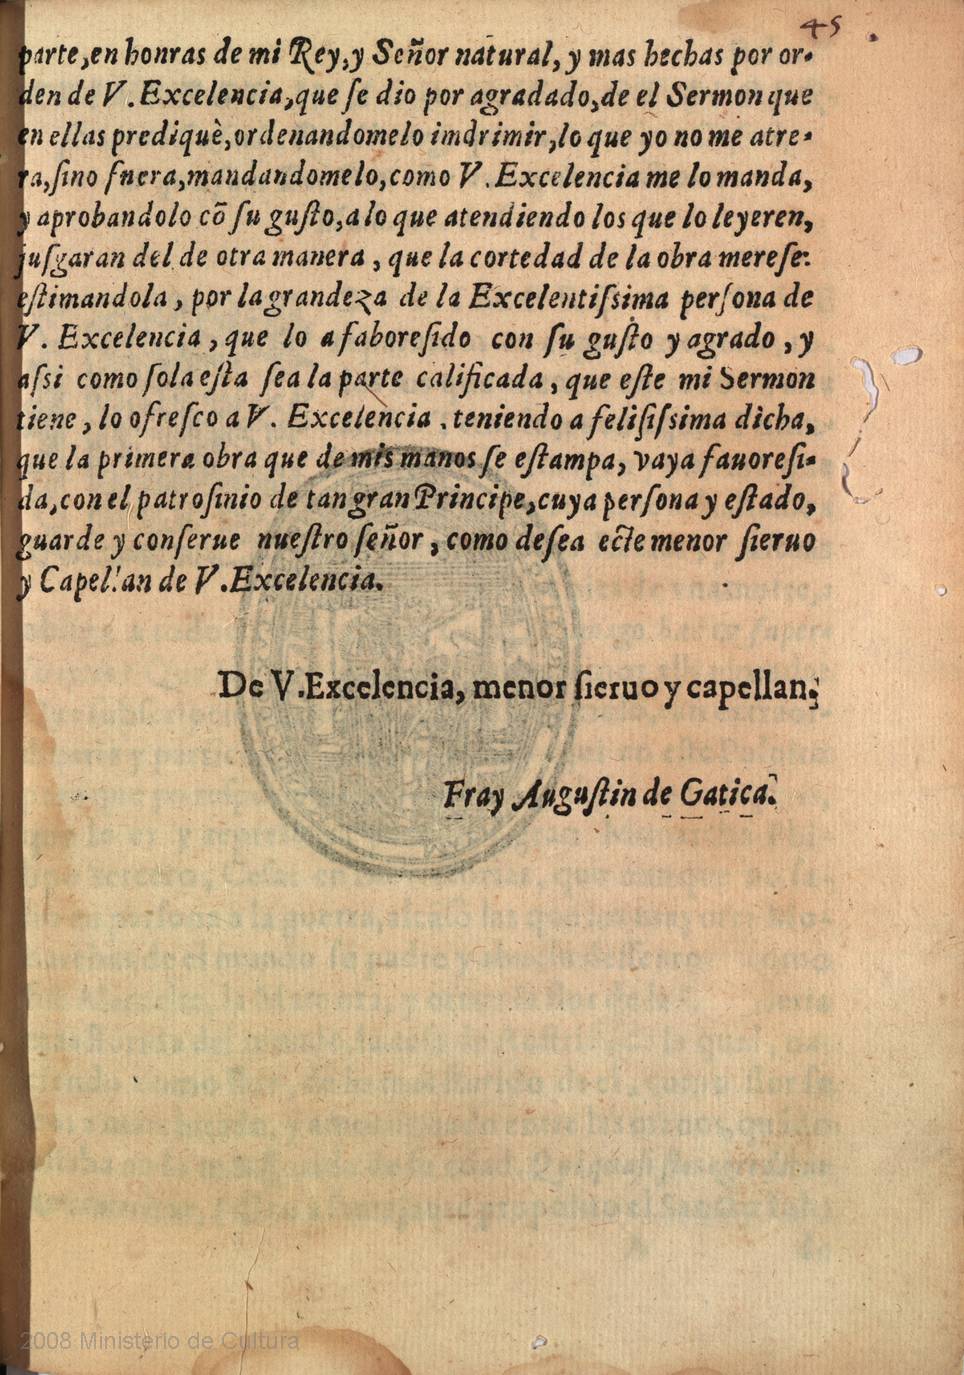 45
parte, en honras de mi Rey, y Señor natural, y mas hechas por or-
den de V. Excelencia, que ſe dio por agradado, de el Sermon que
en ellas prediquè, ordenandomelo imdrimir, lo que yo no me atre-
ra, ſino fuera, mandandomelo, como V. Excelencia me lo manda,
y aprobandolo cō ſu guſto, a lo que atendiendo los que lo leyeren,
juſgaran del de otra manera, que la cortedad de la obra mereſe:
eſtimandola, por la grandeza de la Excelentiſsima perſona de
V. Excelencia, que lo a faboreſido con ſu guſto y agrado, y
aſsi como ſola eſta ſea la parte calificada, que eſte mi Sermon
tiene, lo ofreſco a V. Excelencia. teniendo a feliſiſsima dicha,
que la primera obra que de mis manos ſe eſtampa, vaya fauoreſi-
da, con el patroſinio de tan gran Principe, cuya perſona y eſtado,
guarde y conſerue nueſtro ſeñor, como deſea eſte menor ſieruo
y Capellan de V. Excelencia.
De V. Excelencia, menor ſieruo y capellan.
Fray Auguſtin de Gatica.
2008 Ministerio de Cultura